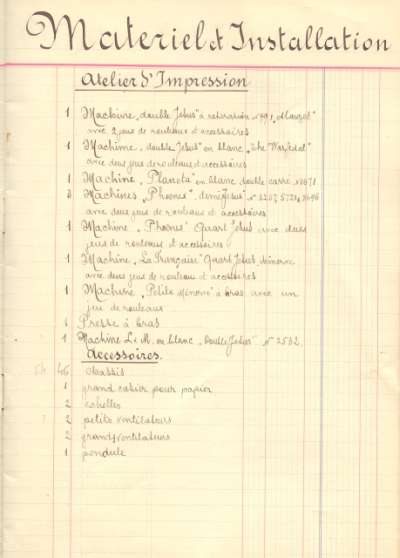 Materiel et Installation
Atelier d'Impression
1 Machine „double Jésus" à retiration
avec 2 jeux de rouleaux et accessoires
1 Machine „double Jésus" en blanc „The
avec deux jeux de rouleaux et accessoires
1 Machine „Planeta" en blanc double carré
3 Machines „Phoenix"
avec deux jeux de rouleaux et accessoires
1 Machine „Phoenix" Quart Jésus avec deux
jeux de rouleaux et accessoires
1 Machine „La Française" Quart Jésus Minerve
avec deux jeux de rouleaux et accessoires
1 Machine „Petite Minerve" à bras avec un
jeu de rouleaux
1 Presse à bras
1 Machine L & M. en blanc „Double Jésus" N° 2532
Accessoires.
46 chassis
1 grand cahier pour papier
2 echelles
2 petits ventilateurs
2 grands ventilateurs
1 pendule